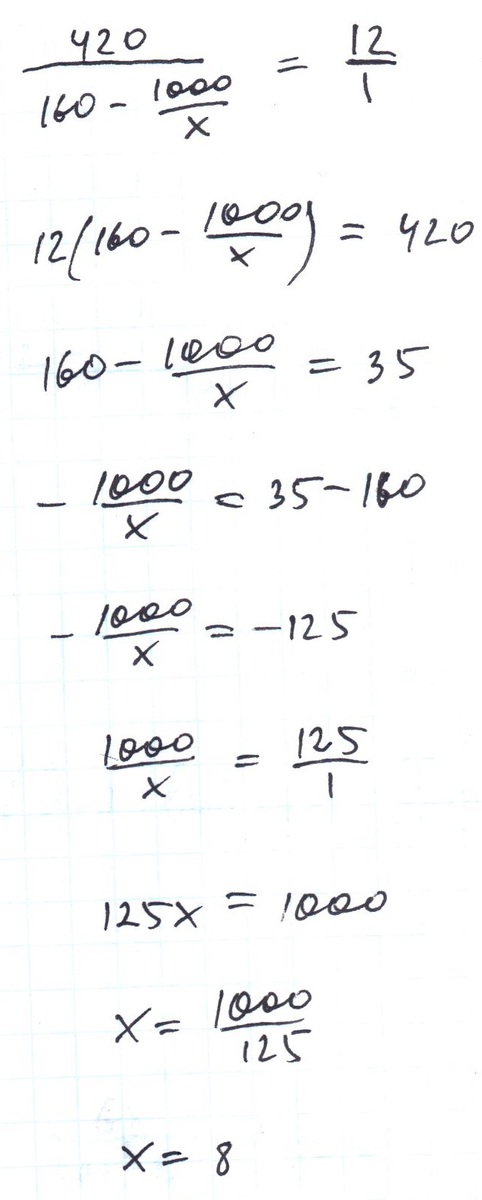 420/(160 - 1000/x) = 12/1
12(160 - 1000/x) = 420
160 - 1000/x = 35
- 1000/x = 35 - 160
- 1000/x = -125
1000/x = 125/1
125x = 1000
x = 1000/125
x = 8